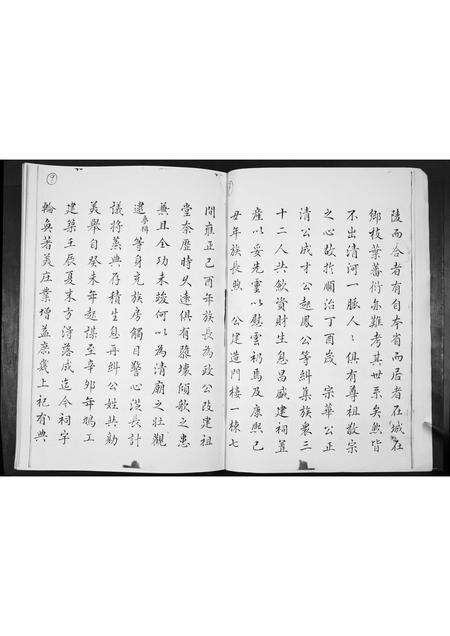 陵而合者有自本省而居者在城在
鄉枝葉蕃衍亦難考其世系矣然皆
不出清河一脈人人俱有尊祖敬宗
之心故於順治丁酉歲 宗華公正
清公成才公起鳳公等糾集族眾三
十二人共斂資財生息昌盛建祠置
產以妥先靈以慰雲礽焉及康熙己
丑年族長煥 公建造門樓一棟七
間雍正己酉年族長為政公改建祖
堂奈歷時久遠俱有頹壞傾欹之患
兼且全功未竣何以為清廟之壯觀
逮 等身充族房觸目驚心爰長計
議將蒸典存積生息再糾公姓共勷
美舉自癸未年起謀至辛卯年鳩工
建築壬辰夏末方得落成迄今祠宇
輪奐著美庄業增益庶歲上祀有典